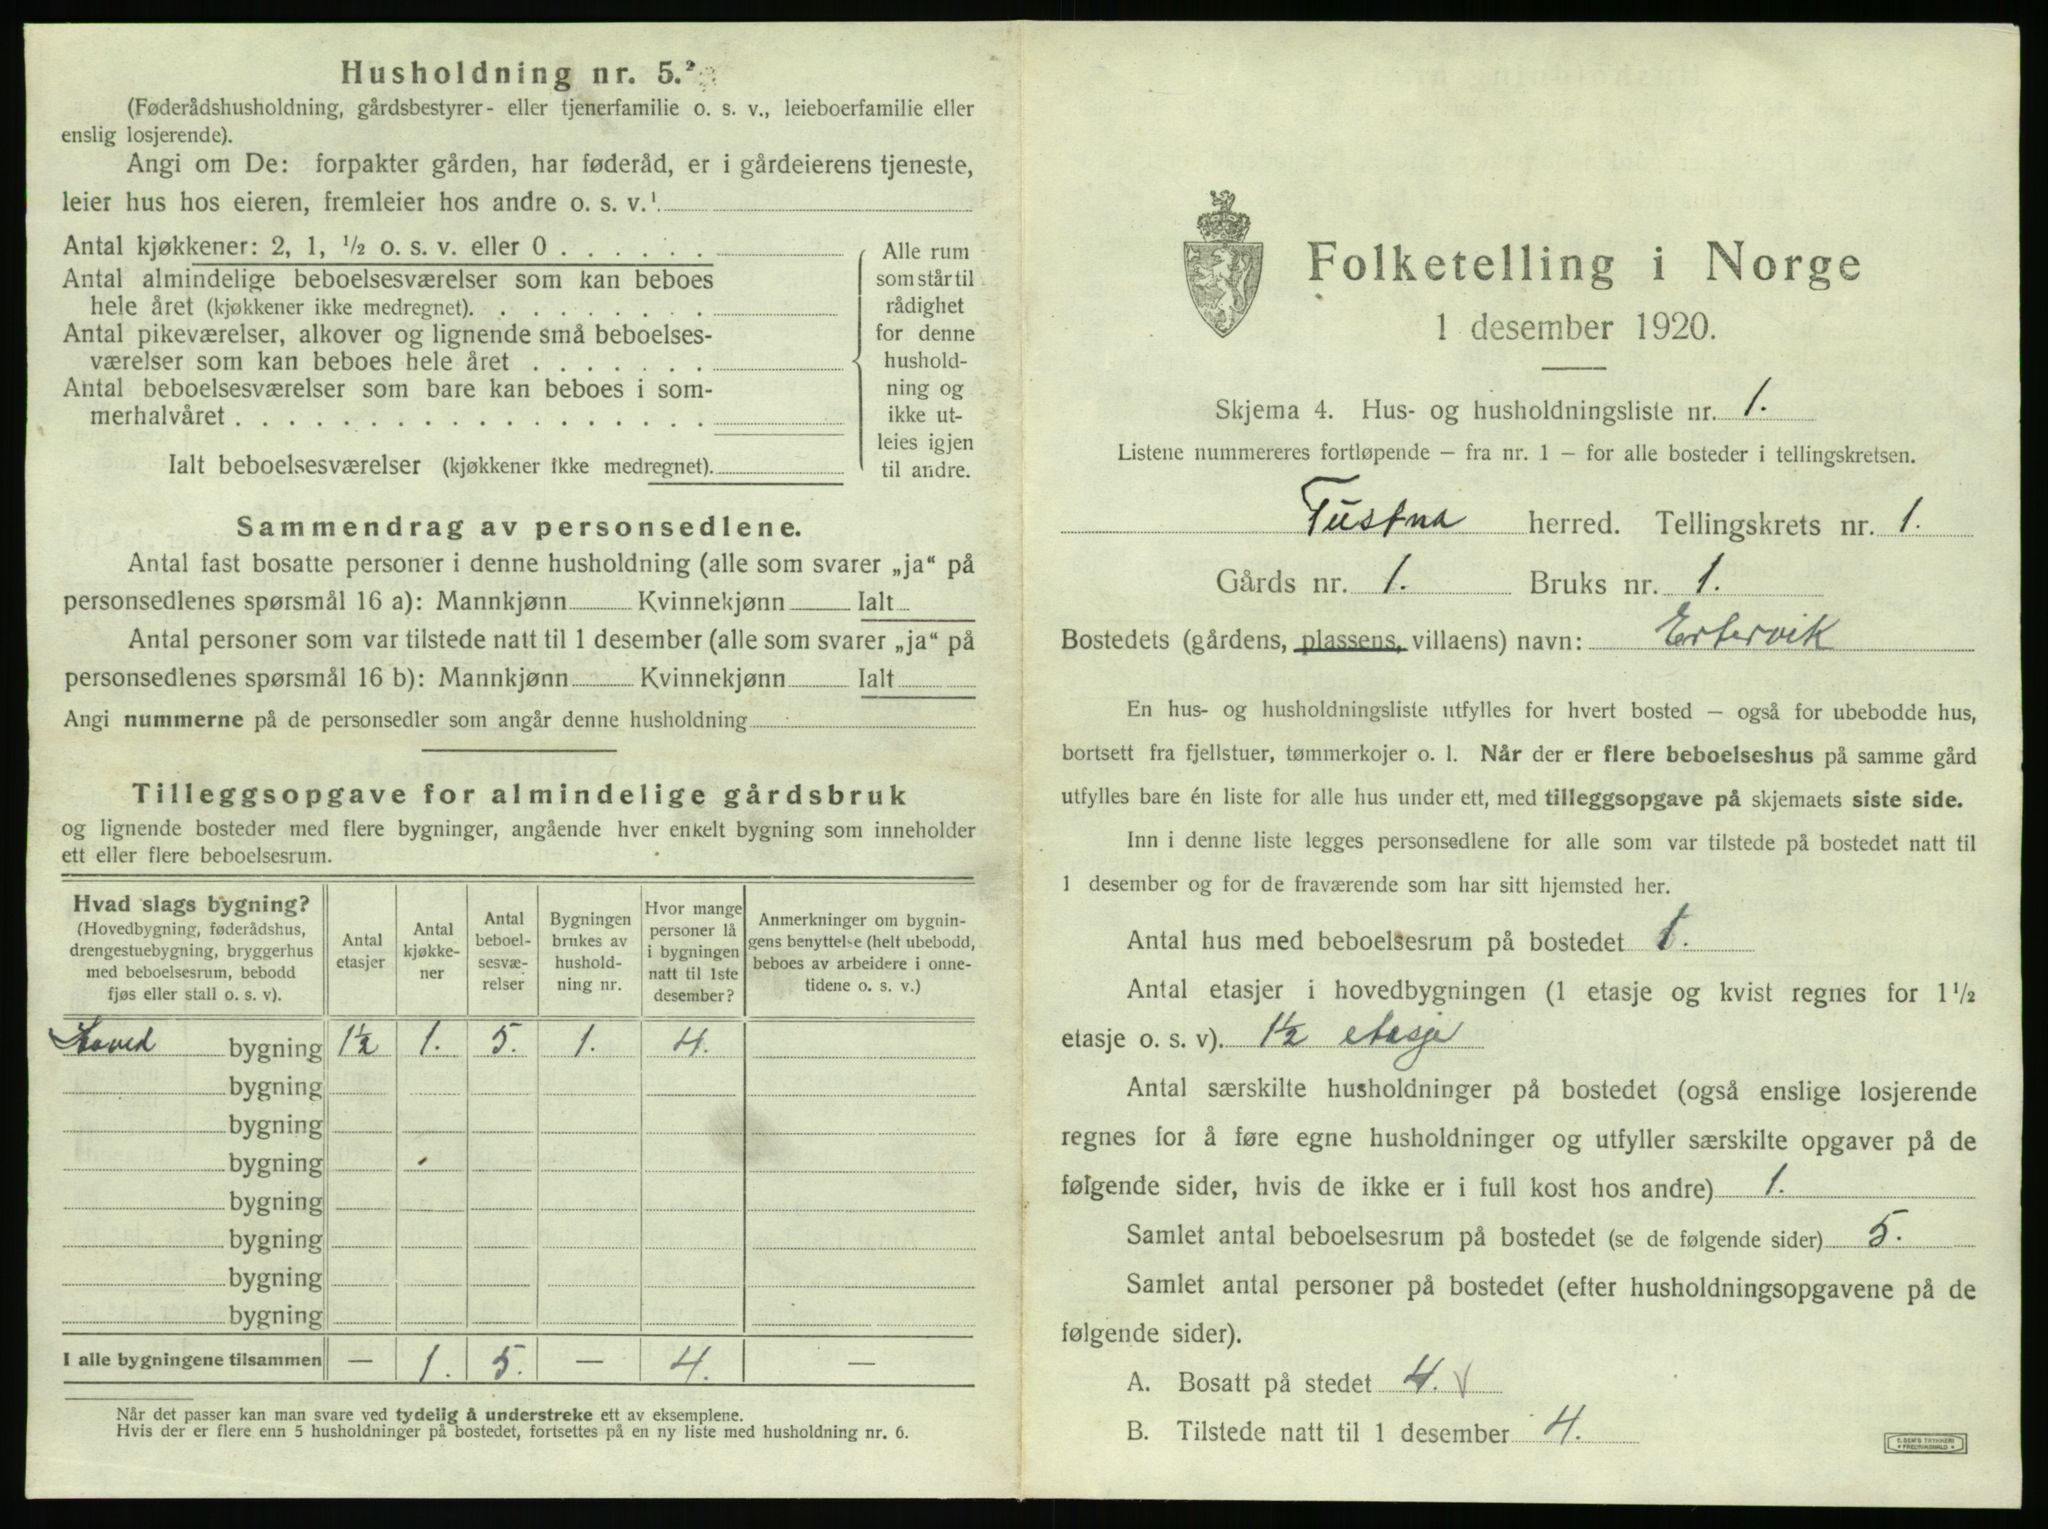 Husholdning nr. 5.²
(Føderådshusholdning, gårdsbestyrer- eller tjenerfamilie o. s. v., leieboerfamilie eller
enslig losjerende).
Angi om De: forpakter gården, har føderåd, er i gårdeierens tjeneste,
leier hus hos eieren, fremleier hos andre o. s. v.¹
Antal kjøkkener: 2, 1, ½ o. s. v. eller 0 . . . . . .
Antal almindelige beboelsesværelser som kan beboes
hele året (kjøkkener ikke medregnet). . . . . . . . .
Antal pikeværelser, alkover og lignende små beboelses-
værelser som kan beboes hele året . . . . . . .
Antal beboelsesværelser som bare kan beboes i som-
merhalvåret . . . . . . . . . . . . . . . . . .
Ialt beboelsesværelser (kjøkkener ikke medregnet).
Alle rum
som står til
rådighet
for denne
hushold-
ning og
ikke ut-
leies igjen
til andre.
Sammendrag av personsedlene.
Antal fast bosatte personer i denne husholdning (alle som svarer „ja“ på
personsedlenes spørsmål 16 a): Mannkjønn Kvinnekjønn Ialt
Antal personer som var tilstede natt til 1 desember (alle som svarer „ja“ på
personsedlenes spørsmål 16 b): Mannkjønn Kvinnekjønn Ialt
Angi nummerne på de personsedler som angår denne husholdning
Tilleggsopgave for almindelige gårdsbruk
og lignende bosteder med flere bygninger, angående hver enkelt bygning som inneholder
ett eller flere beboelsesrum.
Hvad slags bygning?
(Hovedbygning, føderådshus,
drengestuebygning, bryggerhus
med beboelsesrum, bebodd
fjøs eller stall o. s. v).
Antal
etasjer
Antal
kjøkke-
ner
Antal
beboel-
sesvæ-
relser
Bygningen
brukes av
hushold-
ning nr.
Hvor mange
personer lå
i bygningen
natt til 1ste
desember?
Anmerkninger om bygnin-
gens benyttelse (helt ubebodd,
beboes av arbeidere i onne-
tidene o. s. v.)
Hoved bygning 1½ 1. 5. 1. 4.
bygning
bygning
bygning
bygning
bygning
bygning
bygning
I alle bygningene tilsammen — 1. 5. — 4. —
Når det passer kan man svare ved tydelig å understreke ett av eksemplene.
Hvis der er flere enn 5 husholdninger på bostedet, fortsettes på en ny liste med husholdning nr. 6.
Folketelling i Norge
1 desember 1920.
Skjema 4. Hus- og husholdningsliste nr. 1.
Listene nummereres fortløpende – fra nr. 1 – for alle bosteder i tellingskretsen.
Tustna herred. Tellingskrets nr. 1.
Gårds nr. 1. Bruks nr. 1.
Bostedets (gårdens, plassens, villaens) navn: Ertervik
En hus- og husholdningsliste utfylles for hvert bosted – også for ubebodde hus,
bortsett fra fjellstuer, tømmerkojer o. l. Når der er flere beboelseshus på samme gård
utfylles bare én liste for alle hus under ett, med tilleggsopgave på skjemaets siste side.
Inn i denne liste legges personsedlene for alle som var tilstede på bostedet natt til
1 desember og for de fraværende som har sitt hjemsted her.
Antal hus med beboelsesrum på bostedet 1.
Antal etasjer i hovedbygningen (1 etasje og kvist regnes for 1½
etasje o. s. v). 1½ etasje
Antal særskilte husholdninger på bostedet (også enslige losjerende
regnes for å føre egne husholdninger og utfyller særskilte opgaver på de
følgende sider, hvis de ikke er i full kost hos andre) 1.
Samlet antal beboelsesrum på bostedet (se de følgende sider) 5.
Samlet antal personer på bostedet (efter husholdningsopgavene på de
følgende sider).
A. Bosatt på stedet 4. v
B. Tilstede natt til 1 desember 4.